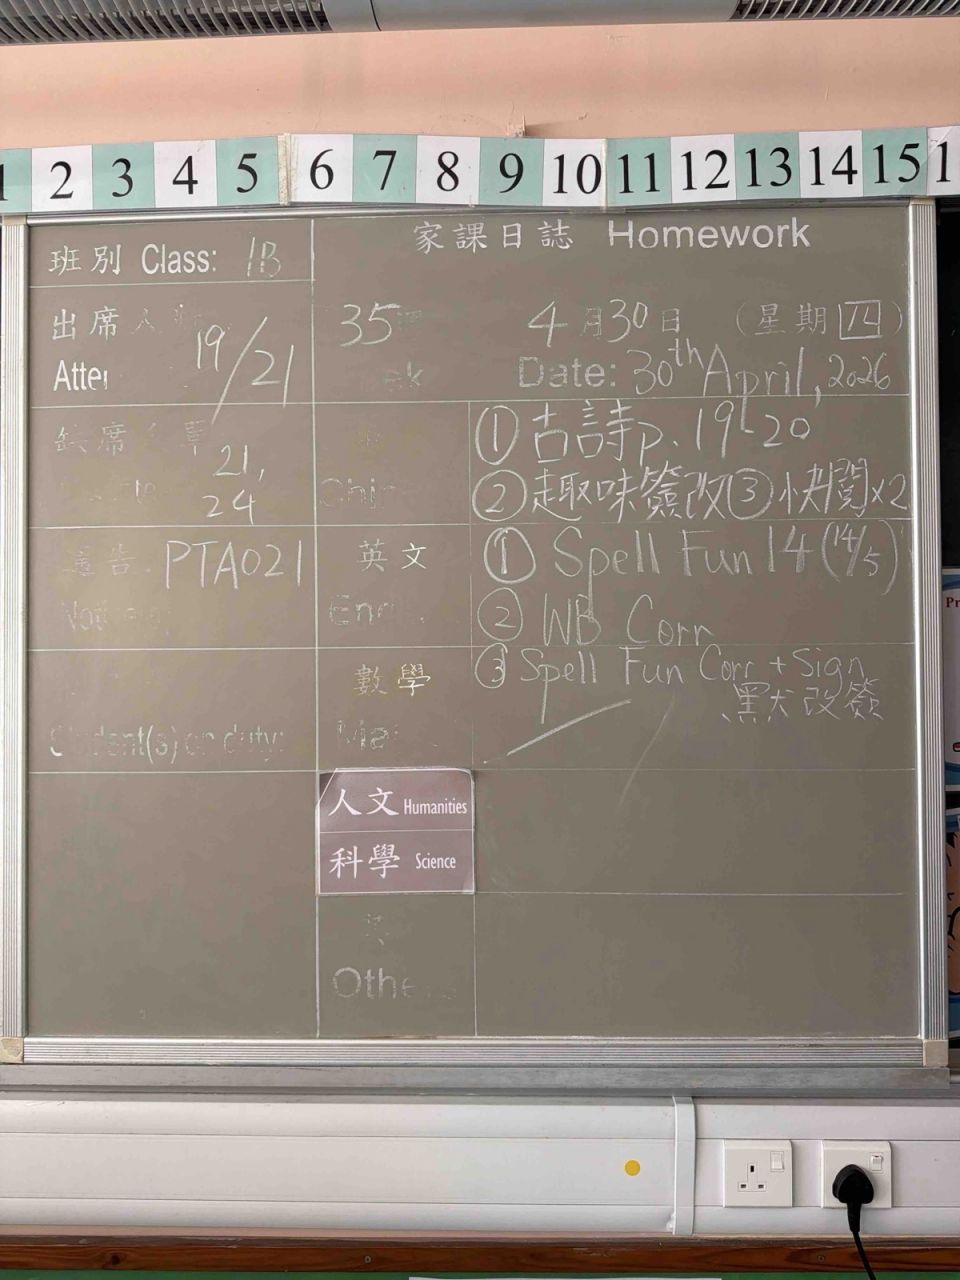 1 2 3 4 5 6 7 8 9 10 11 12 13 14 15 1
班別 Class: 1B
家課日誌 Homework
出席人
19/21
Atte
35
ek
4月30日 (星期四)
Date: 30th April, 2026
缺席
21,
24
Chi
① 古詩p. 19-20
② 趣味簽改 ③ 快閱x2
通告: PTA021
英文
En
① Spell Fun 14 (14/5)
② WB Corr
③ Spell Fun Corr + Sign
默改簽
數學
Ma
Student(s) on duty:
人文 Humanities
科學 Science
Othe
Pr